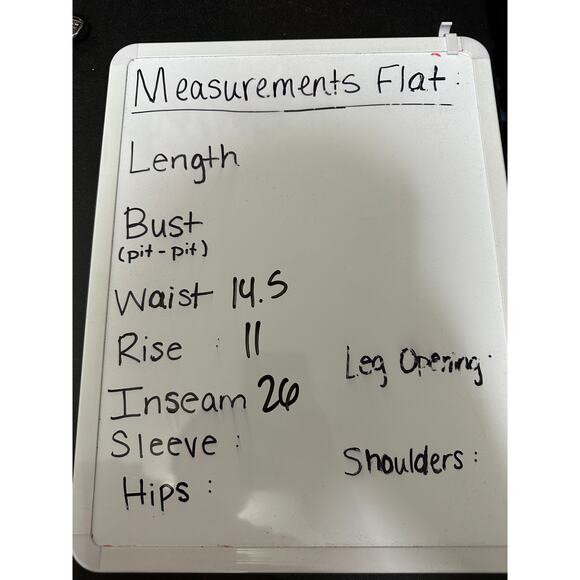 Measurements Flat:
Length
Bust
(pit-pit)
Waist 14.5
Rise : 11
Leg Opening:
Inseam 26
Sleeve :
Shoulders :
Hips :